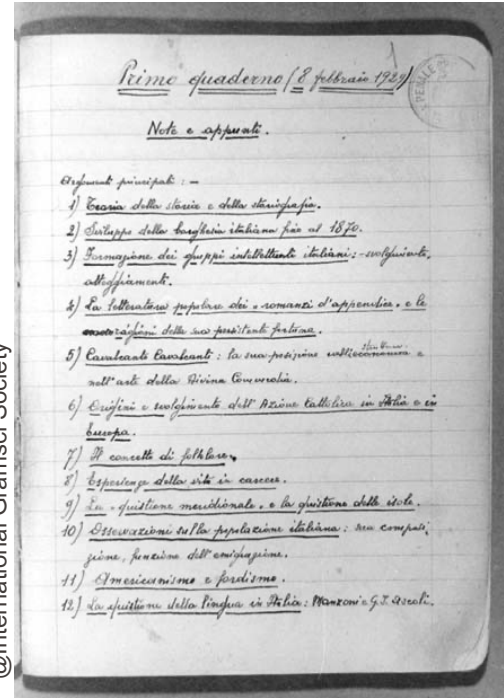 1
Primo quaderno (8 febbraio 1929)
Note e appunti.
Argomenti principali: —
1) Teoria della storia e della storiografia.
2) Sviluppo della borghesia italiana fino al 1870.
3) Formazione dei gruppi intellettuali italiani: – svolgimento,
atteggiamenti.
4) La letteratura popolare dei «romanzi d'appendice» e le
ragioni della sua persistente fortuna.
5) Cavalcante Cavalcanti: la sua posizione nella struttura economica e
nell'arte della Divina Commedia.
6) Origini e svolgimento dell'Azione Cattolica in Italia e in
Europa.
7) Il concetto di folklore.
8) Esperienze della vita in carcere.
9) La «quistione meridionale» e la quistione delle isole.
10) Osservazioni sulla popolazione italiana: sua composi-
zione, funzione dell'emigrazione.
11) Americanismo e fordismo.
12) La quistione della lingua in Italia: Manzoni e G. I. Ascoli.
@International Gramsci Society